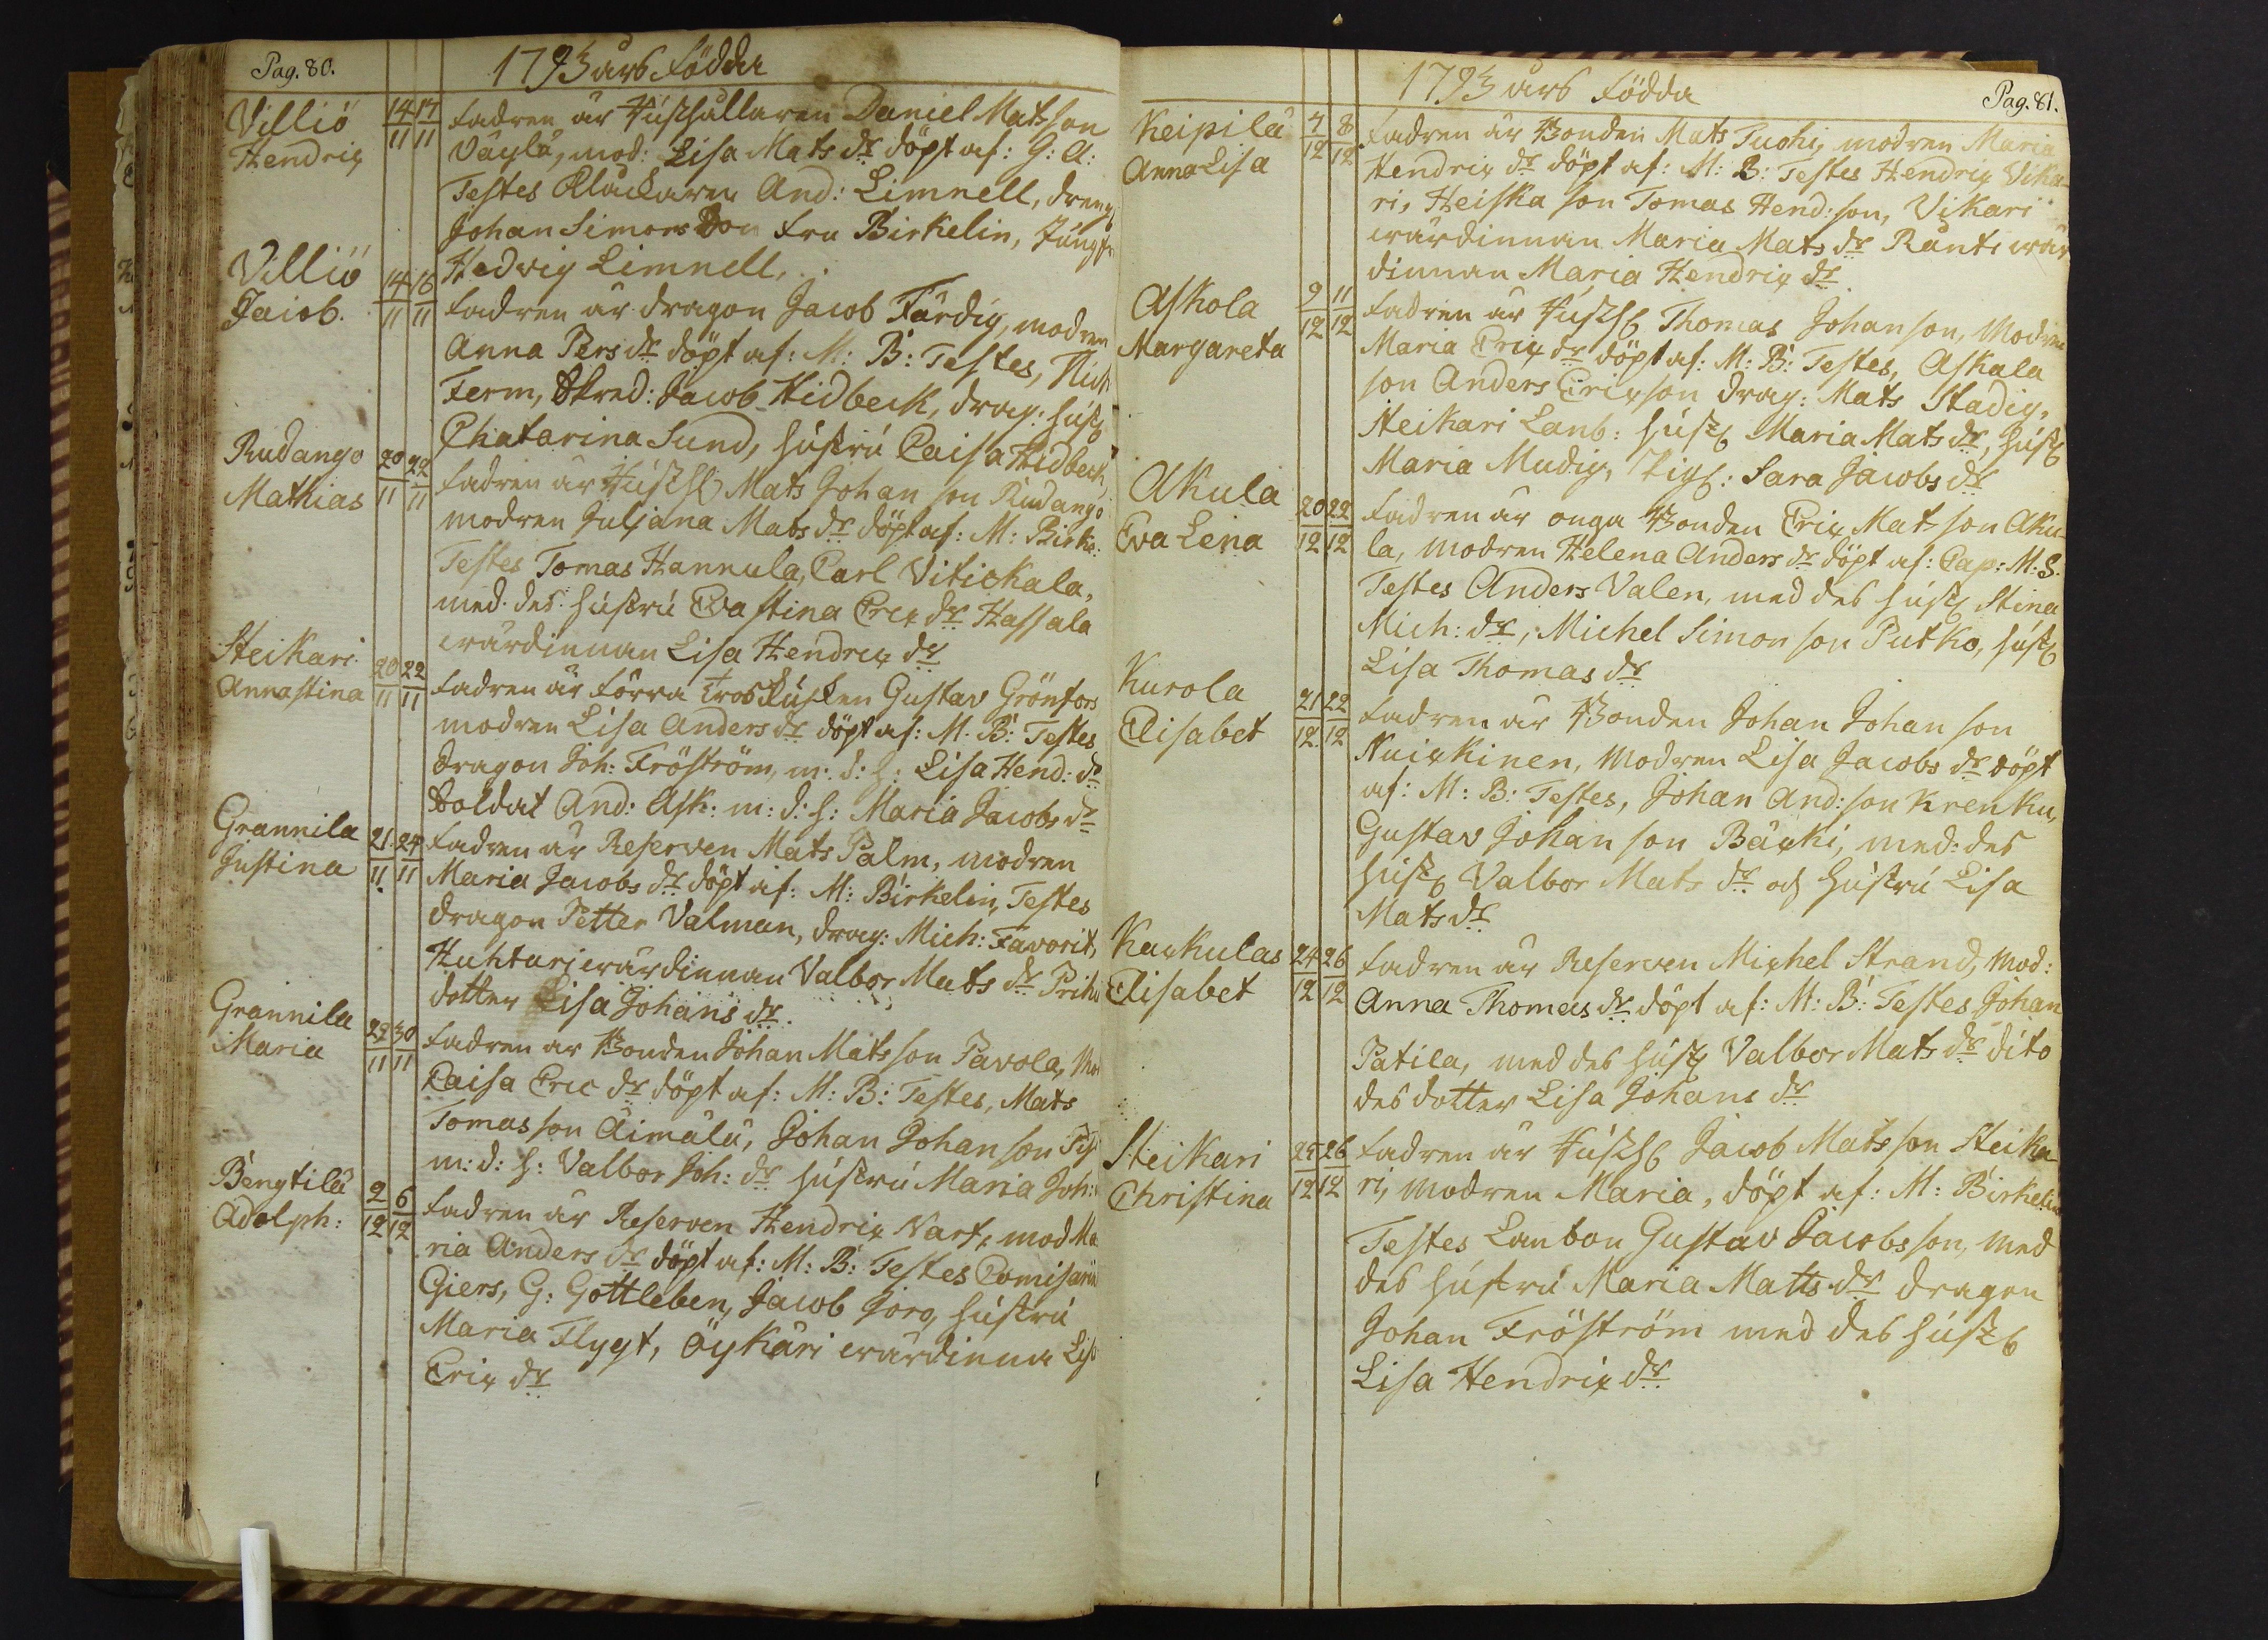 Pag. 80.
1793 års Födda
Villiö
Hendrix
14/11 17/11
Fadren är Hushållaren Daniel Matsson
Väylä, mod: Lisa Mats dr döpt af: G: A:
Testes Klåckaren And: Limnell, dreng
Johan Simonsson Fru Birkelin, Jungfr
Hedvig Limnell,
Villiö
Jacob.
14/11 16/11
Fadren är dragon Jacob Färdig, modren
Anna Pers dr döpt af: M: B: Testes, Mich
Ferm, Skred: Jacob Hidbeck, drag: hust
Chatarina Sund, hustru Caisa Hidbeck,
Rudango
Mathias
20/11 22/11
Fadren är Hush Mats Johan son Rudango
modren Juljana Mats dr döpt af: M: Birke:
Testes Tomas Hannula, Carl Vitickala,
med des hustru Eva Stina Erix dr Hassala
wärdinnan Lisa Hendrix dr
Steikari
Anna Stina
20/11 22/11
Fadren är Förra Trosskusken Gustav Grönfors
modren Lisa Anders dr döpt af: M. B: Testes
dragon Joh: Fröström, m: d: h: Lisa Hend: dr
Soldat And: Ask: m: d: h: Maria Jacobs dr
Grannila
Justina
21/11 24/11
Fadren är Reserven Mats Palm, modren
Maria Jacobs dr döpt af: M: Birkelin, Testes
dragon Petter Valman, drag: Mich: Favorit,
Huhtari wärdinnan Valbor Mats dr Prih
dotter Lisa Johans dr
Grannila
Maria
29/11 30/11
Fadren är Bonden Johan Mats son Pavola, Mo
Caisa Eric dr döpt af: M: B: Testes, Mats
Tomas son Äimälä, Johan Johan son
m: d: h: Valbor Joh: dr hustru Maria Joh:
Bengtilä
Adolph:
2/12 6/12
Fadren är Reserven Hendrix Narf, mod Ma
ria Anders dr döpt af: M: B: Testes Comisarie
Giers, G: Gottleben, Jacob Jorg, hustru
Maria Flygt, Öykäri wärdinna Lis
Erix dr
1793 års Födda
Pag. 81.
Keipilä
Anna Lisa
4/12 8/12
Fadren är Bonden Mats Tuohi, modren Maria
Hendrix dr döpt af: M: B: Testes Hendrix Vika
ri, Heiska son Tomas Hend: son, Vikari
wärdinnan Maria Mats dr Ranti wär
dinnan Maria Hendrix dr
Askola
Margareta
9/12 11/12
Fadren är Hush Thomas Johan son, Modren
Maria Erix dr döpt af: M: B: Testes, Askala
son Anders Erixson drag: Mats Stadig,
Steikari Lanb: hust Maria Mats dr, hust
Maria Modig, Pig: Sara Jacobs dr
Akula
Eva Lena
20/12 22/12
Fadren är onga Bonden Erix Mats son Aku-
la, Modren Helena Anders dr döpt af: Cap: M: S.
Testes Anders Valen, med des hust Stina
Mich: dr, Michel Simon son Putko, hust
Lisa Thomas dr
Kurola
Elisabet
21/12 22/12
Fadren är Bonden Johan Johan son
Nuickinen, Modren Lisa Jacobs dr döpt
af: M: B: Testes, Johan And: son Krenku,
Gustav Johan son Bäcki, med: des
hust Valbor Mats dr och hustru Lisa
Mats dr
Kackulas
Elisabet
24/12 26/12
Fadren är Reserven Michel Strand, Mod:
Anna Thomas dr döpt af: M: B: Testes Johan
Patila, med des hust Valbor Mats dr dito
des dotter Lisa Johans dr
Steikari
Christina
25/12 26/12
Fadren är Hush Jacob Mats son Steika
ri, Modren Maria, döpt af: M: Birkelin
Testes Lanbon Gustav Jacobsson, Med
des hustru Maria Matts dr dragon
Johan Fröström med des hust
Lisa Hendrix dr